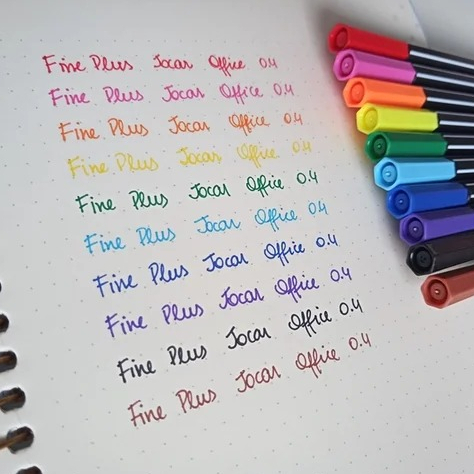 Fine Plus Jocar Office 0.4
Fine Plus Jocar Office 0.4
Fine Plus Jocar Office 0.4
Fine Plus Jocar Office 0.4
Fine Plus Jocar Office 0.4
Fine Plus Jocar Office 0.4
Fine Plus Jocar Office 0.4
Fine Plus Jocar Office 0.4
Fine Plus Jocar Office 0.4
Fine Plus Jocar Office 0.4